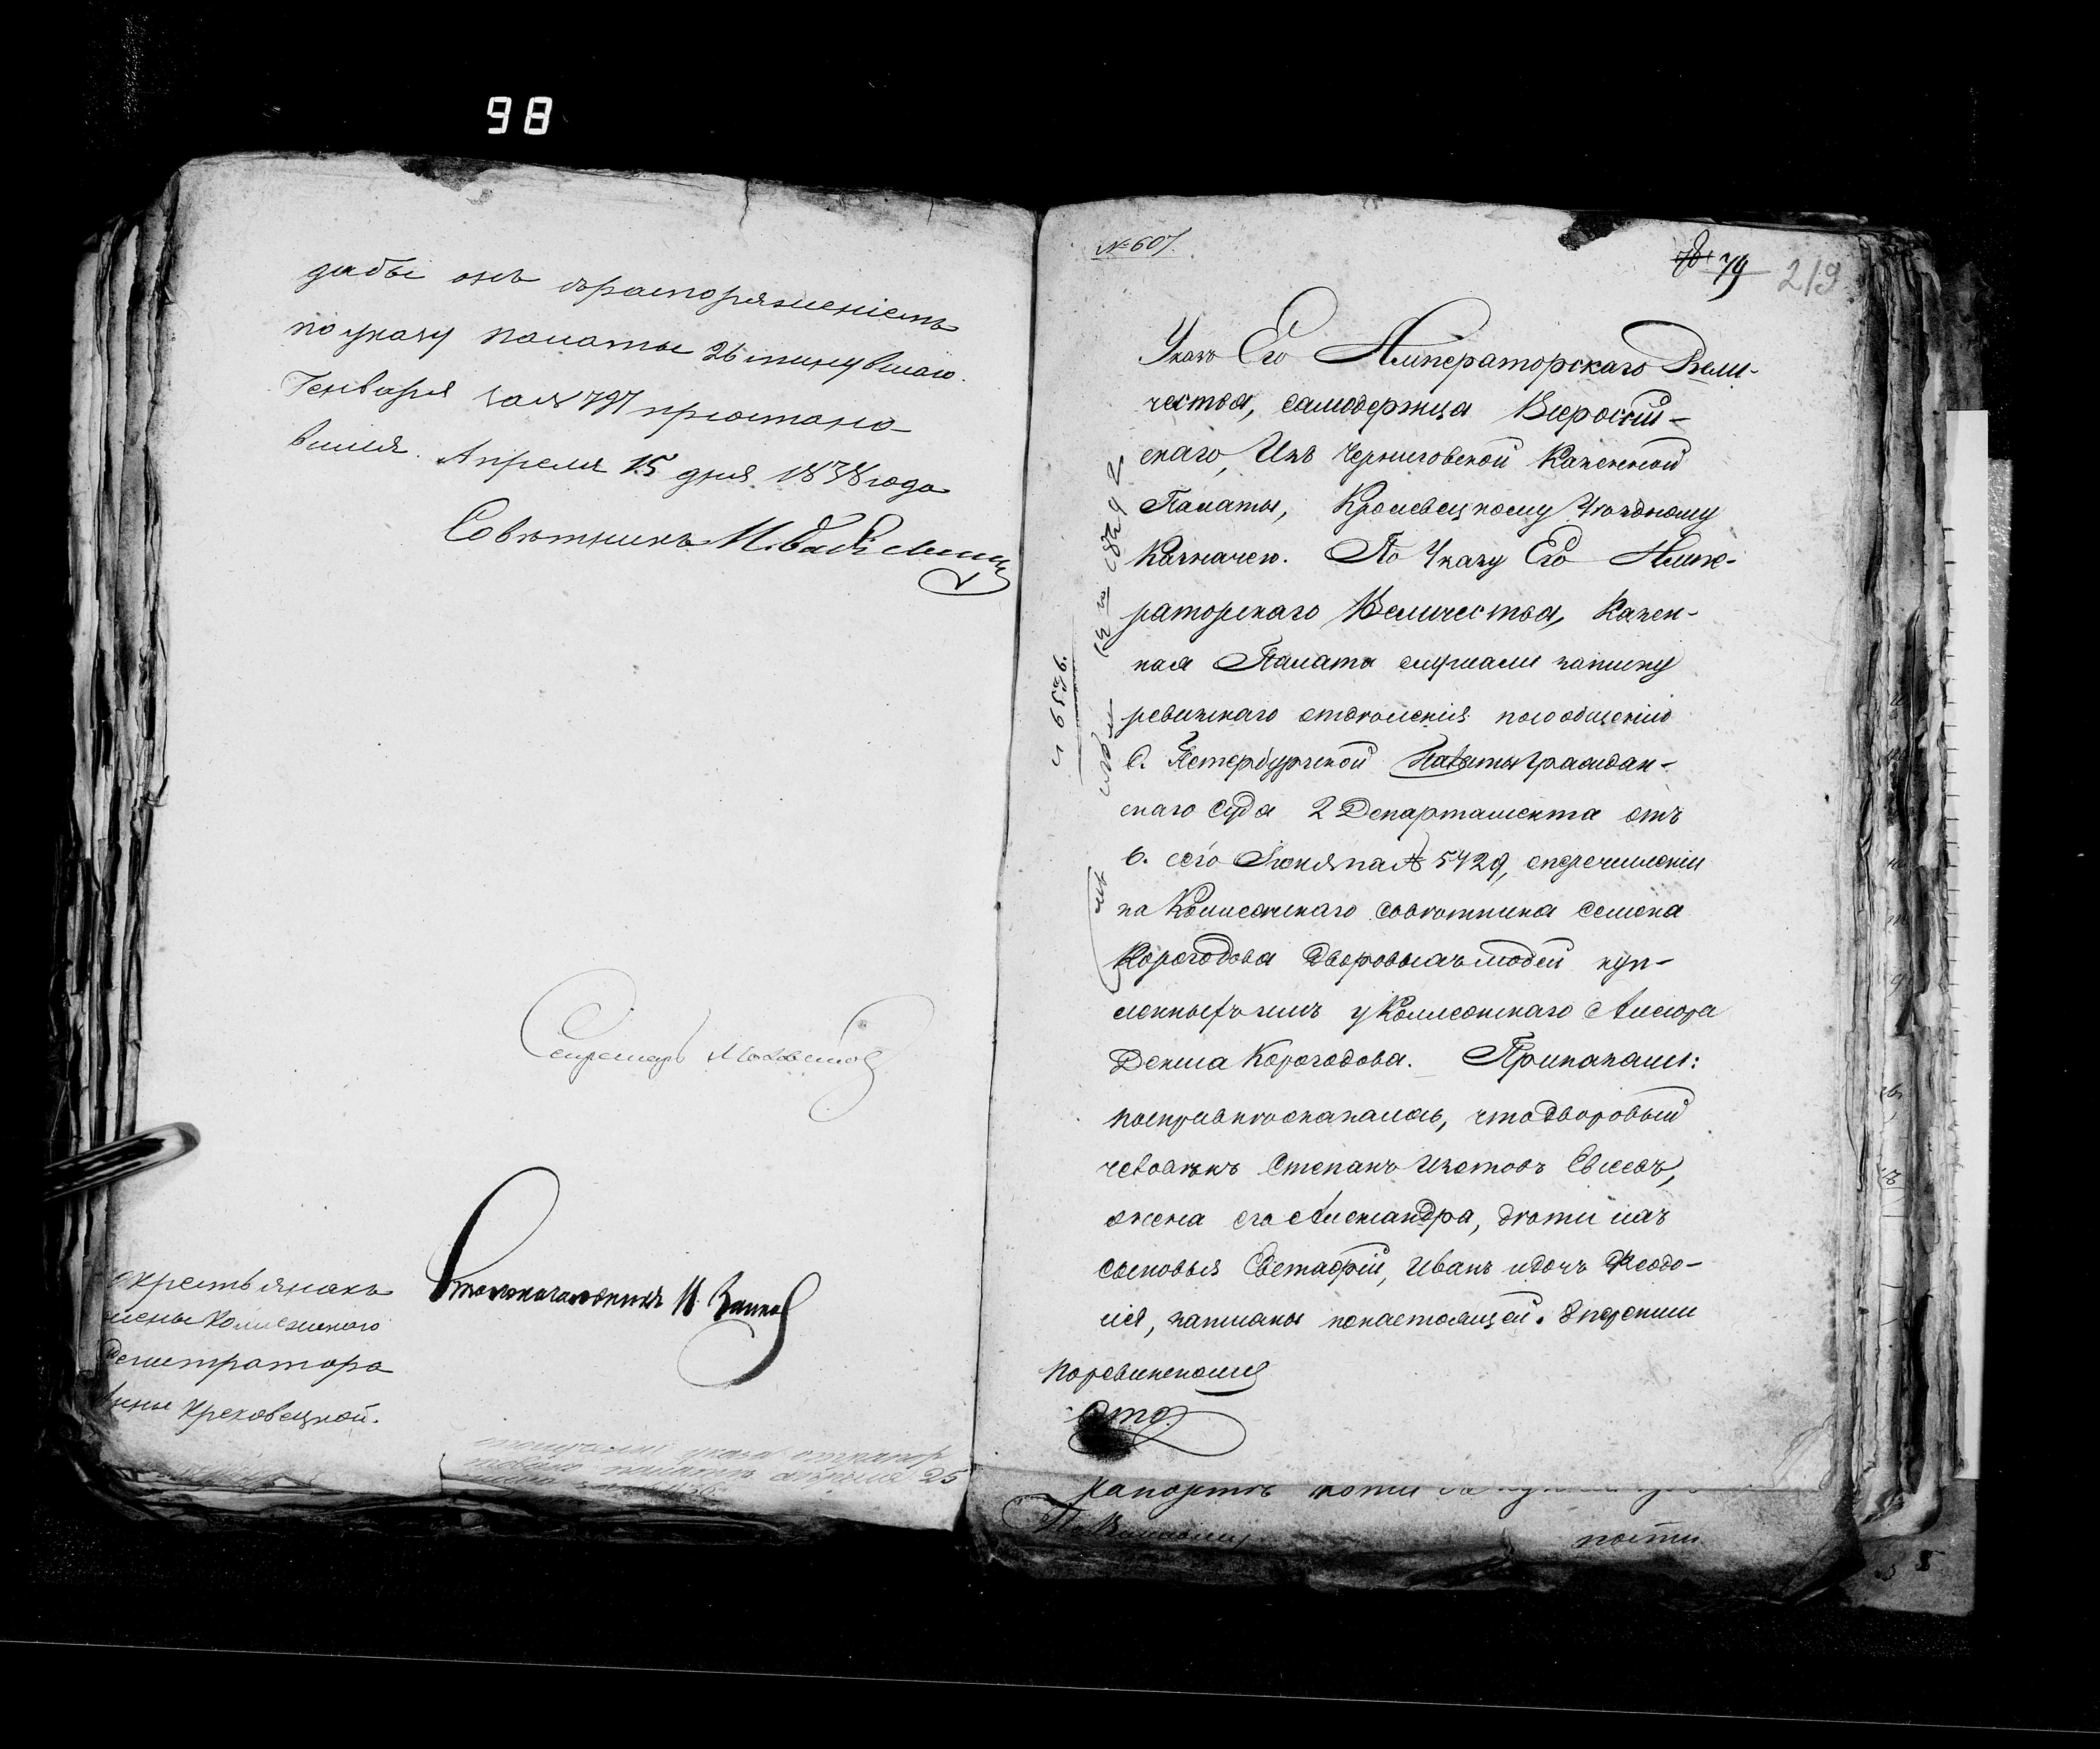 98
дабы онъ распоряженіемъ
по указу палаты 26 минувшаго
Генваря за № 797 пріостано-
вился. Апреля 15 дня 1838 года
Совѣтникъ
Секретарь
Столоначальникъ
о крестьянахъ
жены Колежскаго
Регистратора
Анны Креховецкой.
№ 607.
79
219
Указъ Его Императорскаго Вели-
чества, самодержца Всеросій-
скаго, Изъ Черниговской Казенной
Палаты, Кролевецкому Уѣздному
Казначею. По Указу Его Импе-
раторскаго Величества, Казен-
ная Палата слушали записку
ревизскаго отдѣленія по сообщенію
С. Петербургской Палаты Граждан-
скаго Суда 2 Департамента отъ
6. сего Іюня за № 5729, о перечисленіи
за Колежскаго совѣтника Семена
Корогодова дворовыхъ людей куп-
ленныхъ имъ у Колежскаго Ассесора
Дениса Корогодова. Приказали:
по справкѣ оказалось, что дворовый
человѣкъ Степанъ Изотовъ Евсеевъ,
жена его Александра, дѣти ихъ
сыновья Евстафій, Иванъ и дочь Феодо-
сія, записаны по настоящей 8 перепи
По ревизскому
сто.
рапортъ
почти